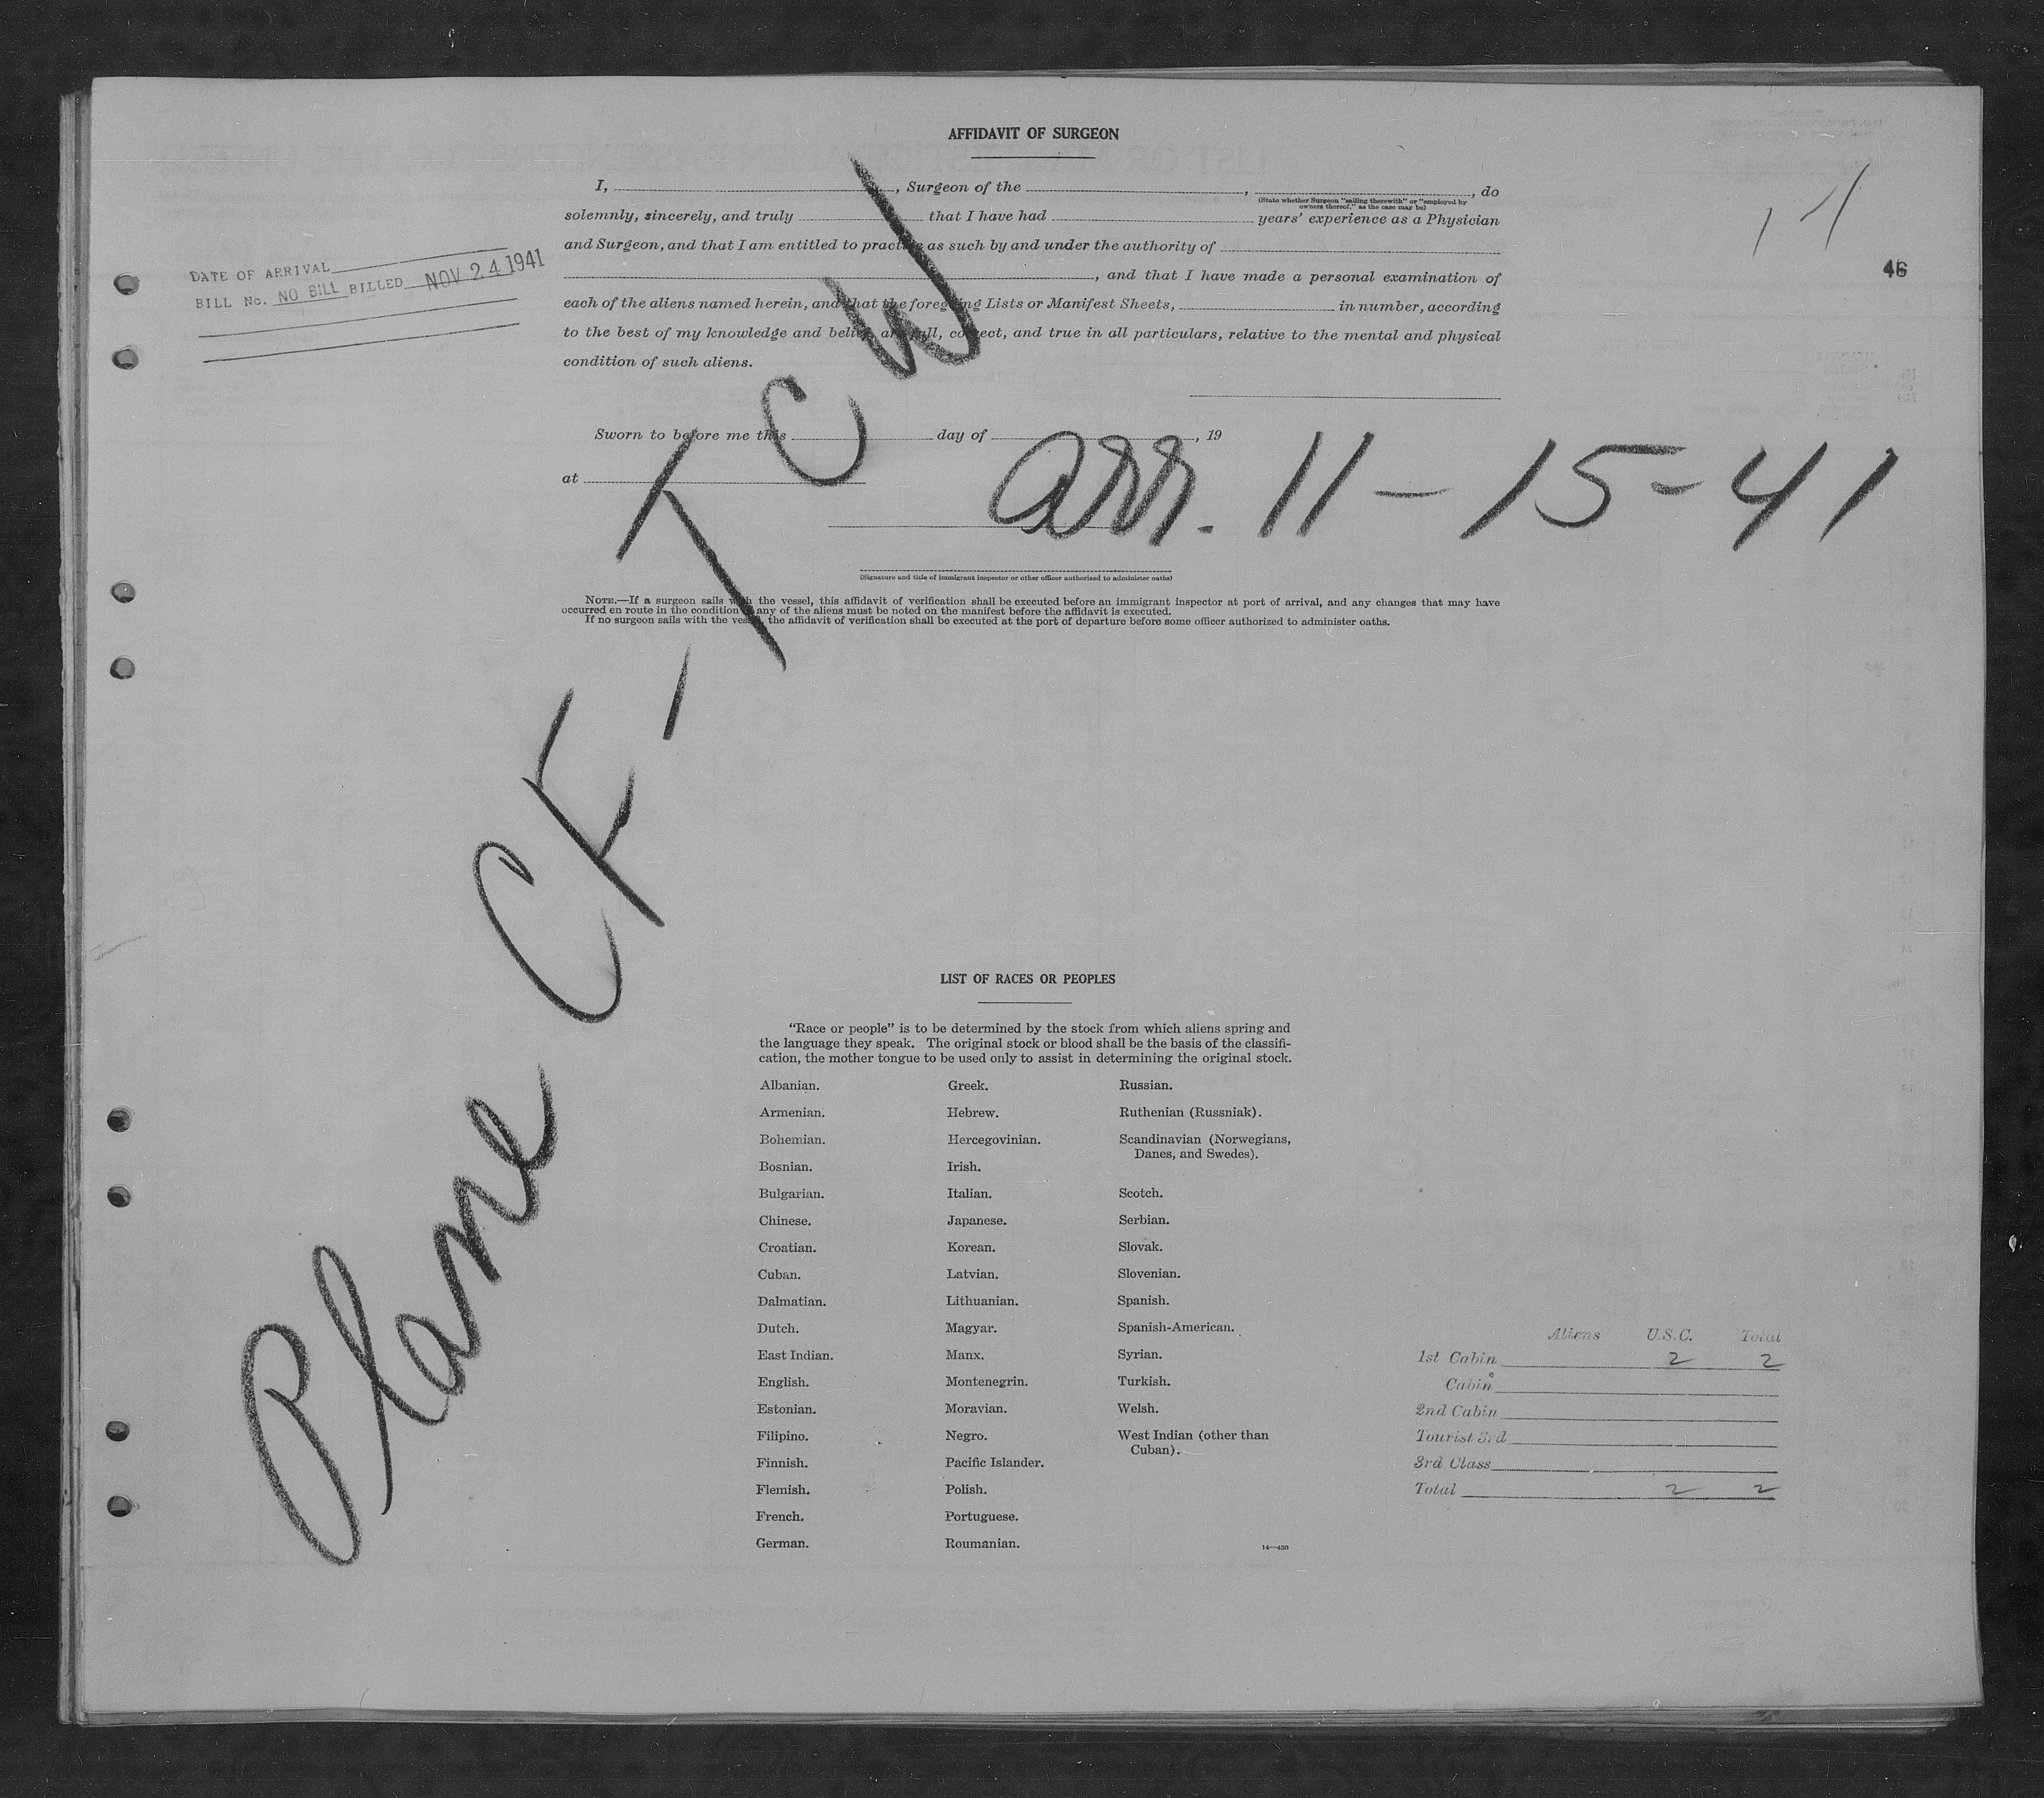 AFFIDAVIT OF SURGEON
I, , Surgeon of the , , do
(State whether Surgeon "sailing therewith" or "employed by
owners thereof," as the case may be)
solemnly, sincerely, and truly that I have had years' experience as a Physician
and Surgeon, and that I am entitled to practice as such by and under the authority of
, and that I have made a personal examination of
each of the aliens named herein, and that the foregoing Lists or Manifest Sheets, in number, according
to the best of my knowledge and belief, are full, correct, and true in all particulars, relative to the mental and physical
condition of such aliens.
DATE OF ARRIVAL
BILL No. NO BILL BILLED NOV 24 1941
46
Sworn to before me this day of , 19
at
arr. 11-15-41
(Signature and title of immigrant inspector or other officer authorized to administer oaths)
NOTE.—If a surgeon sails with the vessel, this affidavit of verification shall be executed before an immigrant inspector at port of arrival, and any changes that may have
occurred en route in the condition of any of the aliens must be noted on the manifest before the affidavit is executed.
If no surgeon sails with the vessel, the affidavit of verification shall be executed at the port of departure before some officer authorized to administer oaths.
Plane CF-TCW
LIST OF RACES OR PEOPLES
"Race or people" is to be determined by the stock from which aliens spring and
the language they speak. The original stock or blood shall be the basis of the classifi-
cation, the mother tongue to be used only to assist in determining the original stock.
Albanian.
Armenian.
Bohemian.
Bosnian.
Bulgarian.
Chinese.
Croatian.
Cuban.
Dalmatian.
Dutch.
East Indian.
English.
Estonian.
Filipino.
Finnish.
Flemish.
French.
German.
Greek.
Hebrew.
Hercegovinian.
Irish.
Italian.
Japanese.
Korean.
Latvian.
Lithuanian.
Magyar.
Manx.
Montenegrin.
Moravian.
Negro.
Pacific Islander.
Polish.
Portuguese.
Roumanian.
Russian.
Ruthenian (Russniak).
Scandinavian (Norwegians,
Danes, and Swedes).
Scotch.
Serbian.
Slovak.
Slovenian.
Spanish.
Spanish-American.
Syrian.
Turkish.
Welsh.
West Indian (other than
Cuban).
14—430
Aliens U.S.C. Total
1st Cabin 2 2
Cabin
2nd Cabin
Tourist 3rd
3rd Class
Total 2 2